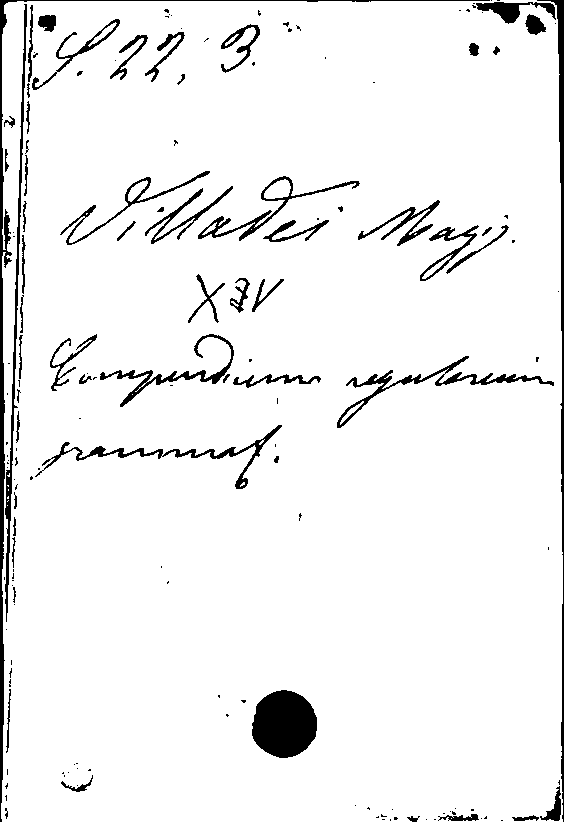 S. 22, 3.
Villadei Magr.
XIV
Compendium regularum
grammat.